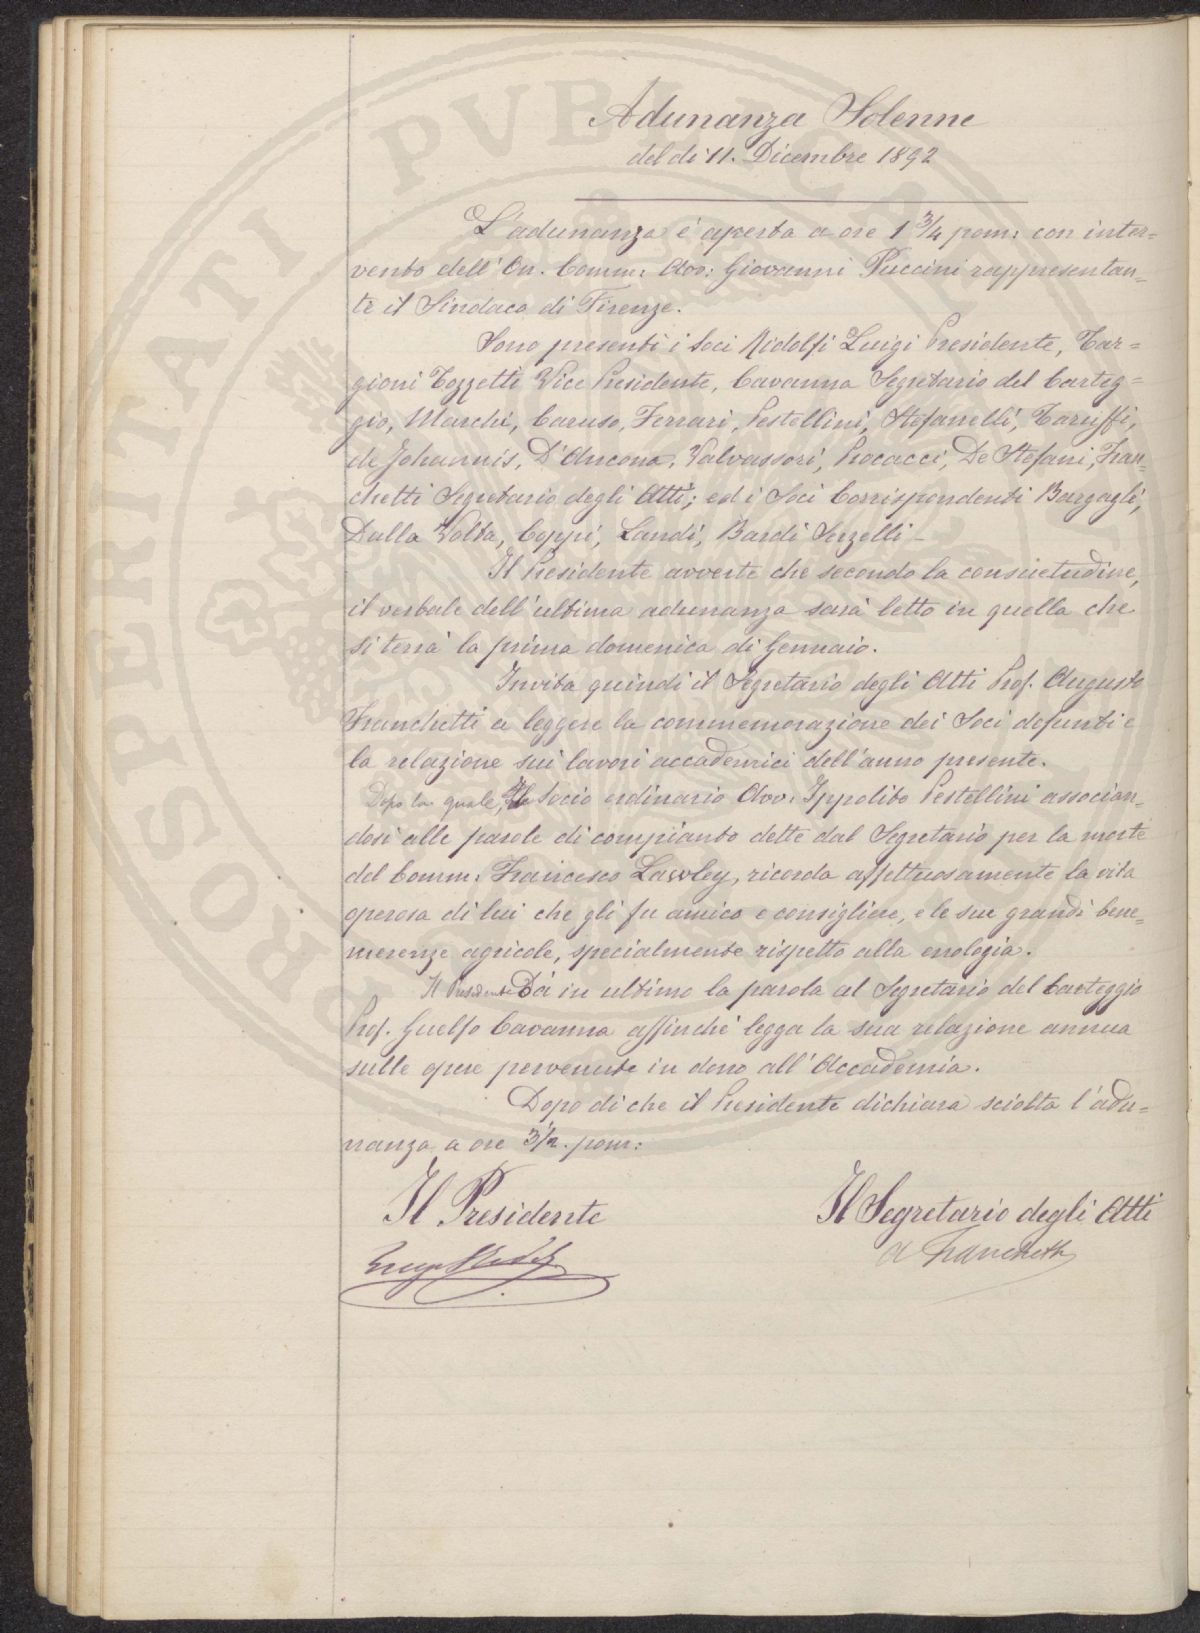 Adunanza Solenne
del dì 11. Dicembre 1892
L'adunanza è aperta a ore 1 3/4 pom: con inter=
vento dell'On. Comm: Avv: Giovanni Puccini rappresentan=
te il Sindaco di Firenze.
Sono presenti i Soci Ridolfi Luigi Presidente, Tar=
gioni Tozzetti Vice Presidente, Cavanna Segretario del Carteg=
gio, Marchi, Caruso, Ferrari, Pestellini, Stefanelli, Taruffi,
de Johannis, D'Ancona, Valvassori, Procacci, De Stefani, Fran=
chetti Segretario degli Atti; ed i Soci Corrispondenti Bargagli,
Dalla Volta, Coppi, Landi, Bardi Serzelli –
Il Presidente avverte che secondo la consuetudine,
il verbale dell'ultima adunanza sarà letto in quella che
si terrà la prima domenica di Gennaio.
Invita quindi il Segretario degli Atti Prof. Augusto
Franchetti a leggere la commemorazione dei Soci defunti e
la relazione sui lavori accademici dell'anno presente.
Dopo la quale, il Socio ordinario Avv: Ippolito Pestellini associan=
dosi alle parole di compianto dette dal Segretario per la morte
del Comm: Francesco Lawley, ricorda affettuosamente la vita
operosa di lui che gli fu amico e consigliere, e le sue grandi bene=
merenze agricole, specialmente rispetto alla enologia.
Il Presidente Dà in ultimo la parola al Segretario del Carteggio
Prof. Guelfo Cavanna affinchè legga la sua relazione annua
sulle opere pervenute in dono all'Accademia.
Dopo di che il Presidente dichiara sciolta l'adu=
nanza a ore 3 1/2. pom:
Il Presidente
Il Segretario degli Atti
Luigi Ridolfi
A Franchetti
PROSPERITATI PUBLICAE